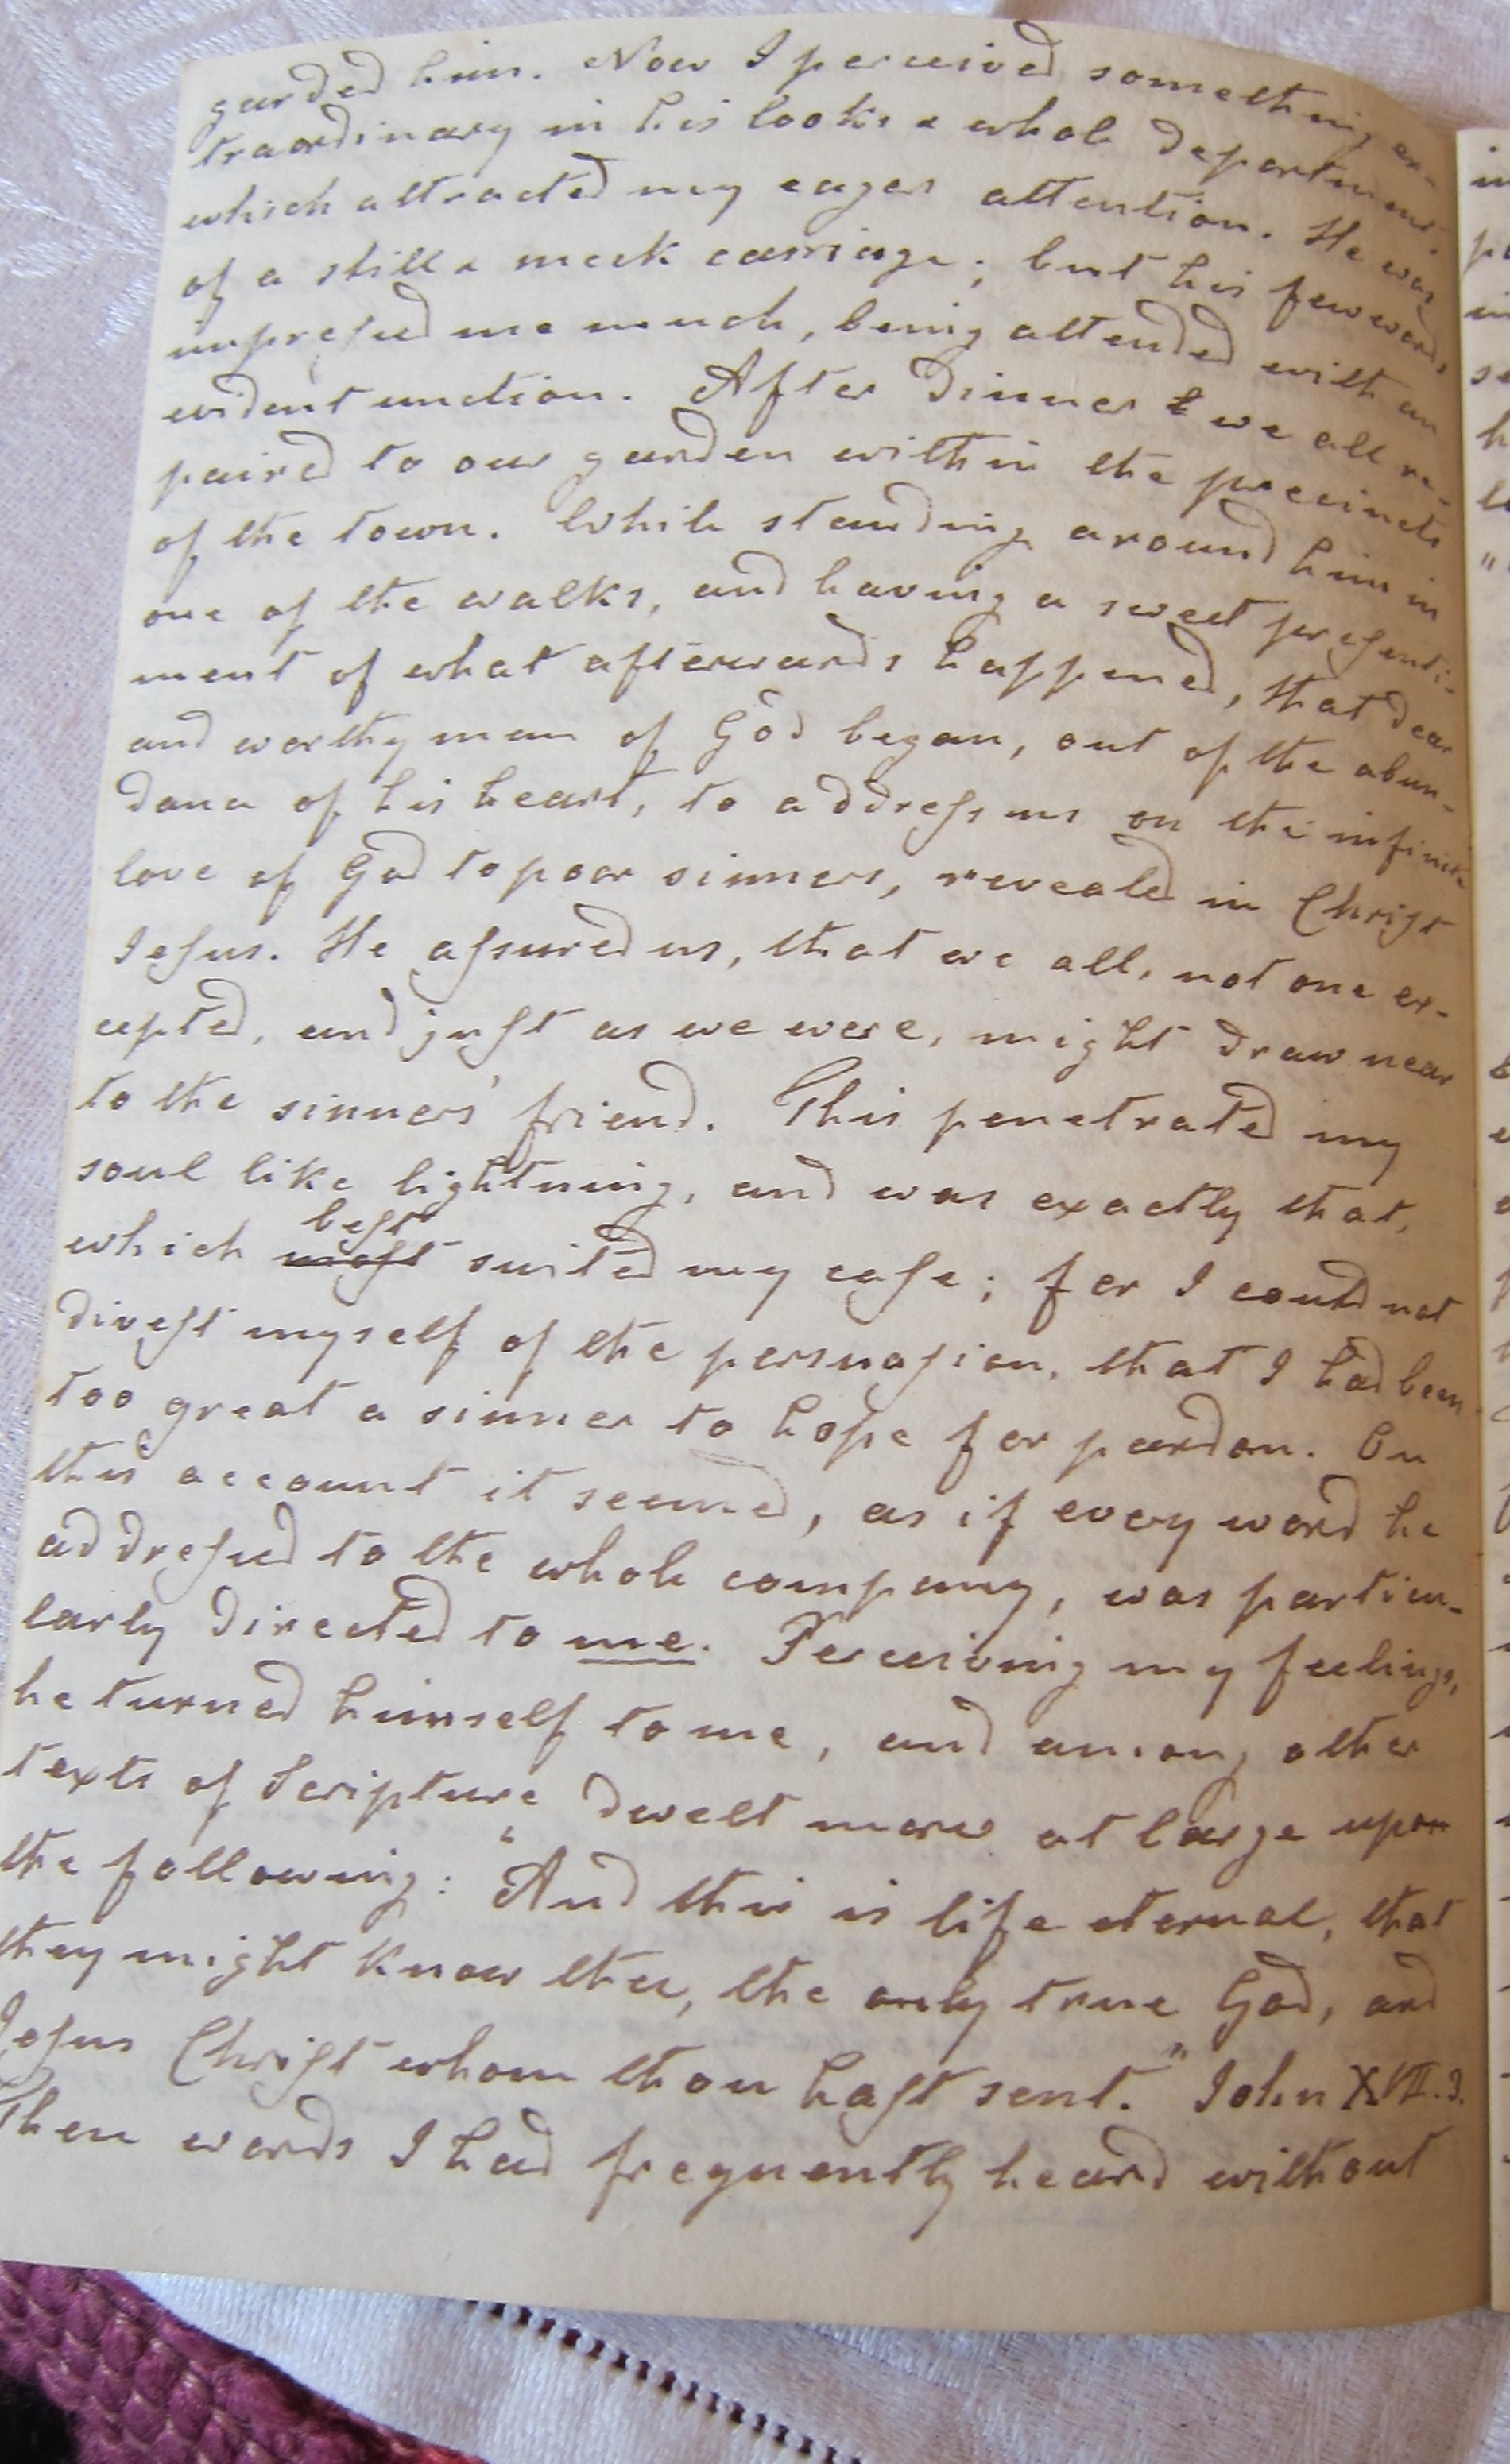 garded him. Now I perceived something ex-
traordinary in his looks & whole deportment
which attracted my eager attention. He was
of a still & meek carriage; but his few words
impreſsed me much, being attended with an
evident unction. After dinner we all re-
paired to our garden within the precincts
of the town. While standing around him in
one of the walks, and having a sweet preſenti-
ment of what afterwards happened, that dear
and worthy man of God began, out of the abun-
dance of his heart, to addreſs us on the infinite
love of God to poor sinners, revealed in Chriſt
Jeſus. He aſsured us, that we all, not one ex-
cepted, and juſt as we were, might draw near
to the sinners' friend. This penetrated my
soul like lightning, and was exactly that,
beſt
which moſt suited my caſe; for I could not
diveſt myself of the persuaſion, that I had been
too great a sinner to hope for pardon. On
this account it seemed, as if every word he
addreſsed to the whole company, was particu-
larly directed to me. Perceiving my feelings,
he turned himself to me, and among other
texts of Scripture dwelt more at large upon
the following: "And this is life eternal, that
they might know thee, the only true God, and
Jeſus Chriſt whom thou haſt sent." John XVII.3.
These words I had frequently heard without